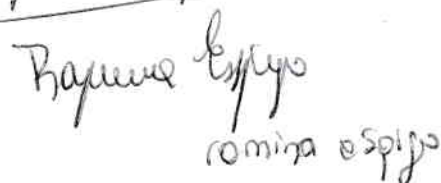 Romina Espijo
romina espijo